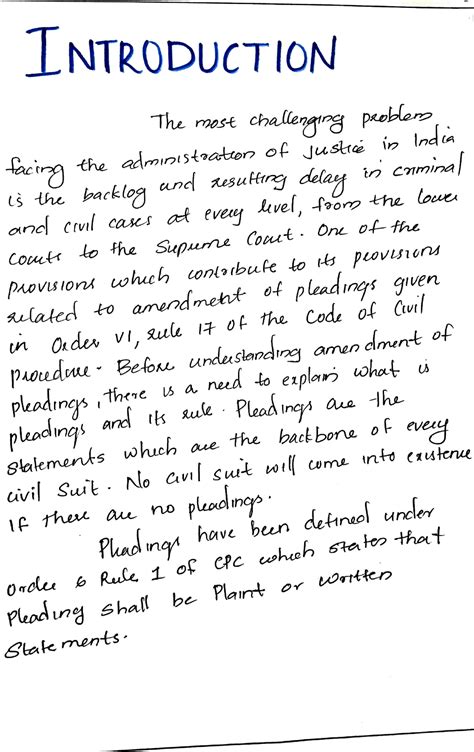 INTRODUCTION
The most challenging problem
facing the administration of justice in India
is the backlog and resulting delay in criminal
and civil cases at every level, from the lower
courts to the Supreme Court. One of the
provisions which contribute to its provisions
related to amendment of pleadings given
in Order VI, rule 17 of the Code of Civil
procedure. Before understanding amendment of
pleadings, there is a need to explain what is
pleadings and its rule. Pleadings are the
statements which are the backbone of every
civil suit. No civil suit will come into existence
if there are no pleadings.
Pleadings have been defined under
Order 6 Rule 1 of CPC which states that
Pleading shall be Plaint or written
Statements.